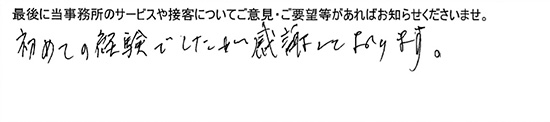 最後に当事務所のサービスや接客についてご意見・ご要望等があればお知らせくださいませ。
初めての経験でしたが感謝しております。